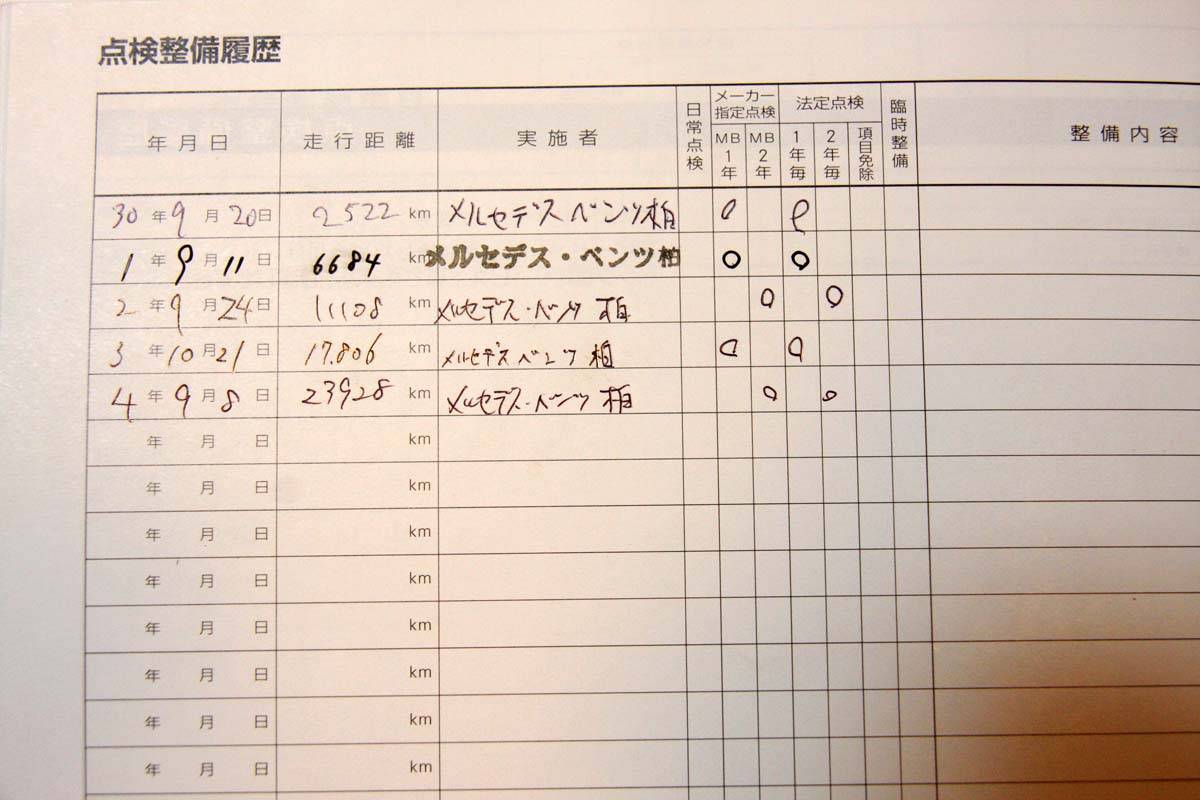 点検整備履歴
年月日 走行距離 実施者 日常点検 メーカー指定点検 MB1年 MB2年 法定点検 1年毎 2年毎 項目免除 臨時整備 整備内容
30年9月20日 2522km メルセデスベンツ柏 ○ ○
1年9月11日 6684km メルセデス・ベンツ柏 ○ ○
2年9月24日 11108km メルセデス・ベンツ柏 ○ ○
3年10月21日 17.806km メルセデスベンツ柏 ○ ○
4年9月8日 23928km メルセデス・ベンツ柏 ○ ○
年 月 日 km
年 月 日 km
年 月 日 km
年 月 日 km
年 月 日 km
年 月 日 km
年 月 日 km
年 月 日 km